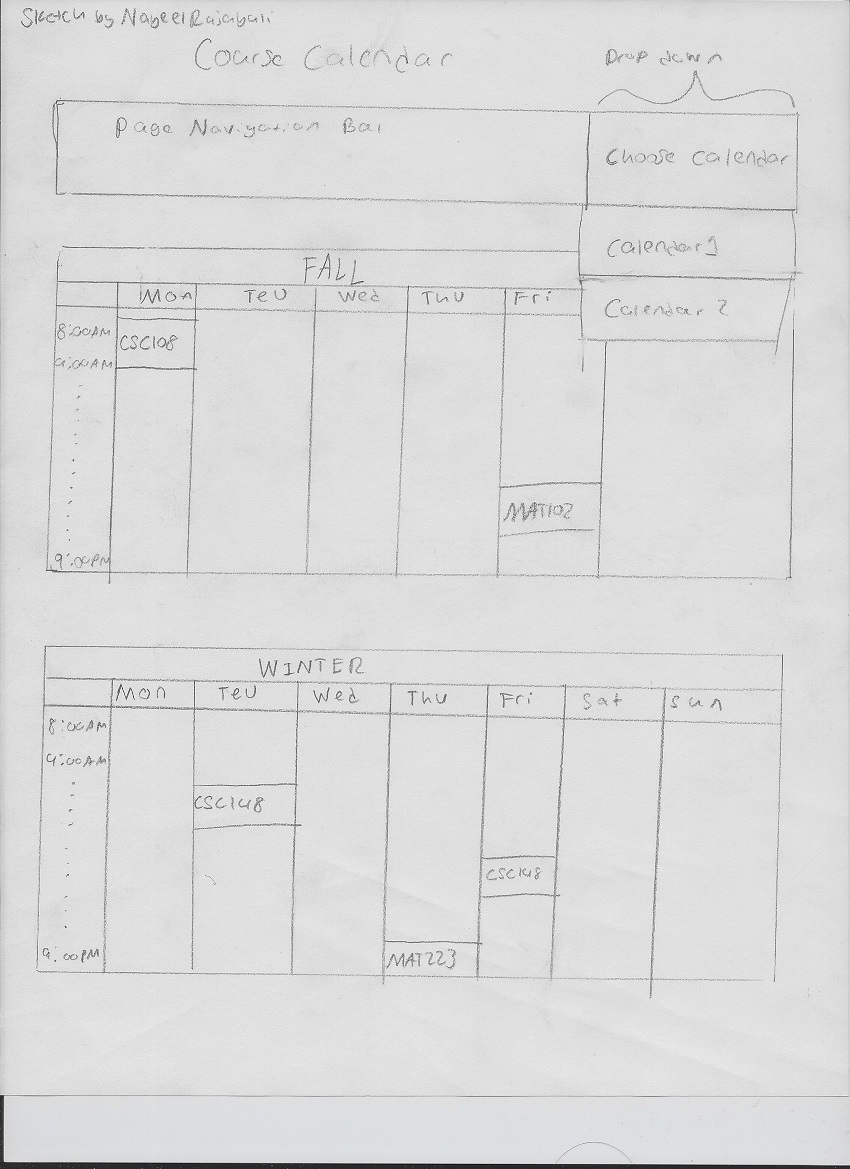 Sketch by Nabeel Rajabali
Course Calendar
Drop down
Page Navigation Bar
Choose Calendar
Calendar 1
Calendar 2
FALL
Mon TeU Wed Thu Fri
8:00AM
CSC108
9:00AM
MAT102
9:00PM
WINTER
Mon TeU Wed Thu Fri Sat Sun
8:00AM
9:00AM
CSC148
CSC148
9:00PM MAT223